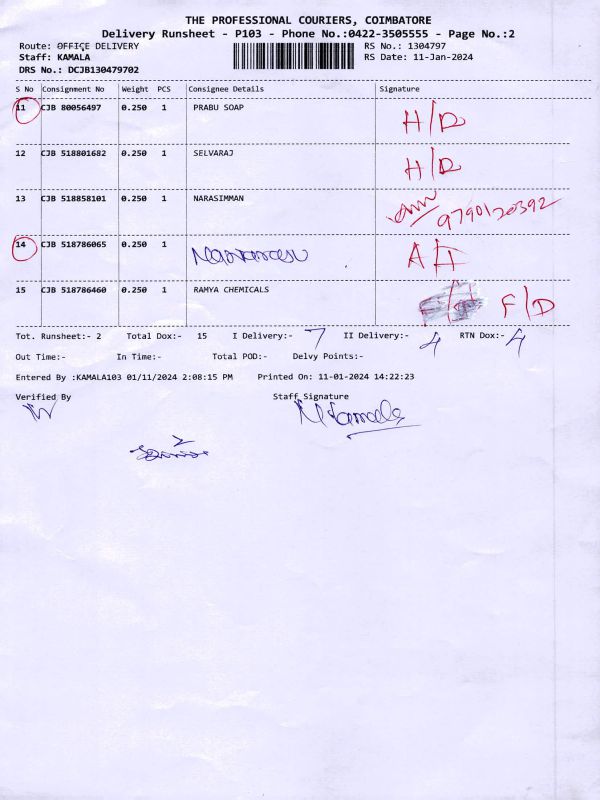 THE PROFESSIONAL COURIERS, COIMBATORE
Delivery Runsheet - P103 - Phone No.:0422-3505555 - Page No.:2
Route: OFFICE DELIVERY RS No.: 1304797
Staff: KAMALA RS Date: 11-Jan-2024
DRS No.: DCJB130479702
S No Consignment No Weight PCS Consignee Details Signature
11 CJB 80056497 0.250 1 PRABU SOAP H/D
12 CJB 518801682 0.250 1 SELVARAJ H/D
13 CJB 518858101 0.250 1 NARASIMMAN 9790120392
14 CJB 518786065 0.250 1
15 CJB 518786460 0.250 1 RAMYA CHEMICALS F/D
Tot. Runsheet:- 2 Total Dox:- 15 I Delivery:- 7 II Delivery:- 4 RTN Dox:- 4
Out Time:- In Time:- Total POD:- Delvy Points:-
Entered By :KAMALA103 01/11/2024 2:08:15 PM Printed On: 11-01-2024 14:22:23
Verified By Staff Signature
N Kamala
2